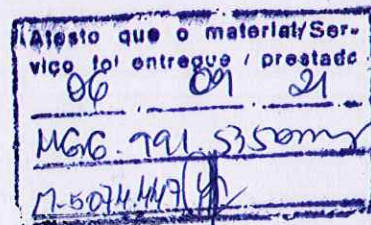 Atesto que o material/Ser-
viço foi entregue / prestado
06 09 21
MG16.991.535
M-5074.447